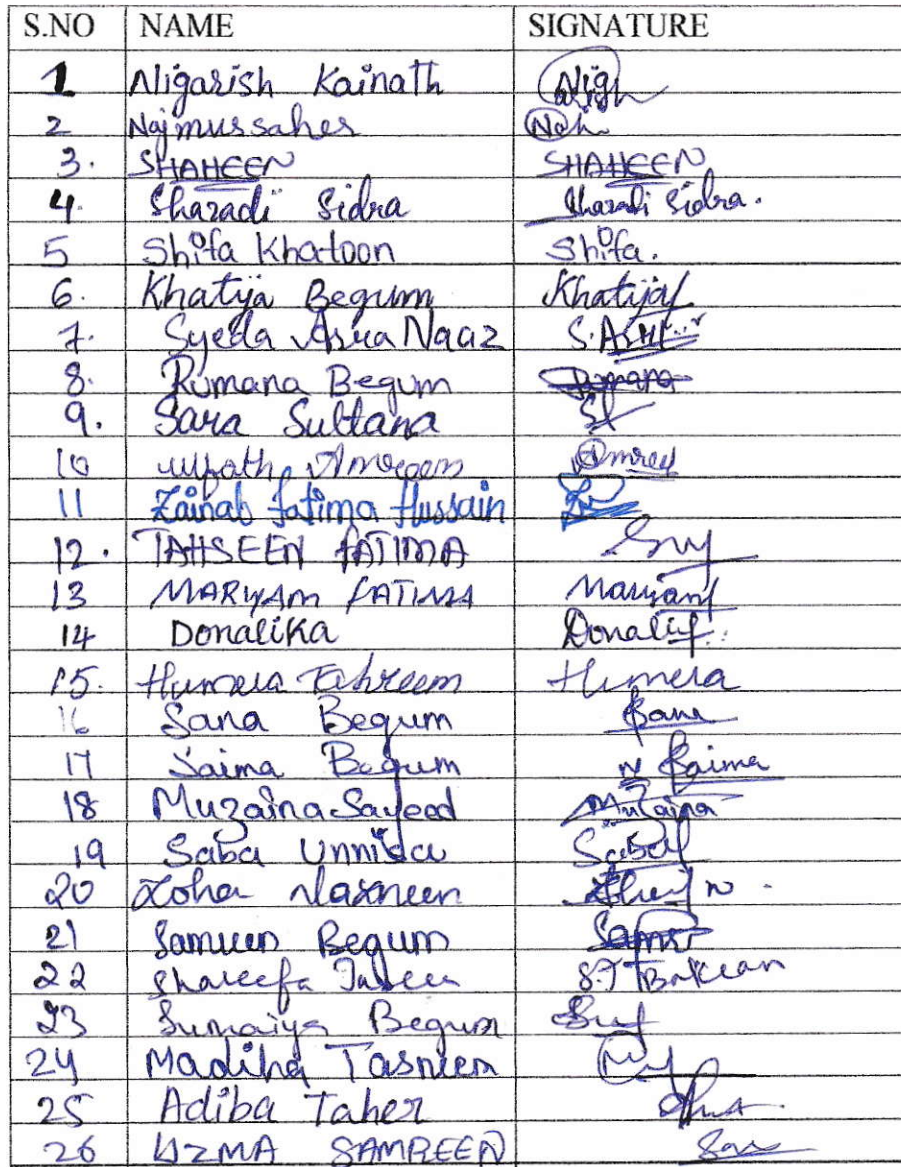 S.NO NAME SIGNATURE
1 Nigarish Kainath Nigh
2 Najmussaher
3. SHAHEEN SHAHEEN
4. Sharadi Sidra Sharadi Sidra.
5 Shifa Khatoon Shifa.
6. Khatija Begum Khatija
7. Syeda Asra Naaz
8. Rumana Begum Rumana
9. Sara Sultana
10 Amreen
11 Zainab Fatima Hussain
12. TAHSEEN FATIMA
13 MARYAM FATIMA Maryam
14 DONALIKA
15. Humera Tahreem Humera
16 Sana Begum Sana
17 Saima Begum Saima
18 Muzaina Sayeed Muzaina
19 Saba Unnisa Saba
20 Zoha
21 Begum
22 Shareefa
23 Sumaiya Begum
24 Madiha Tasneem
25 Adiba Taher
26 UZMA SAMREEN